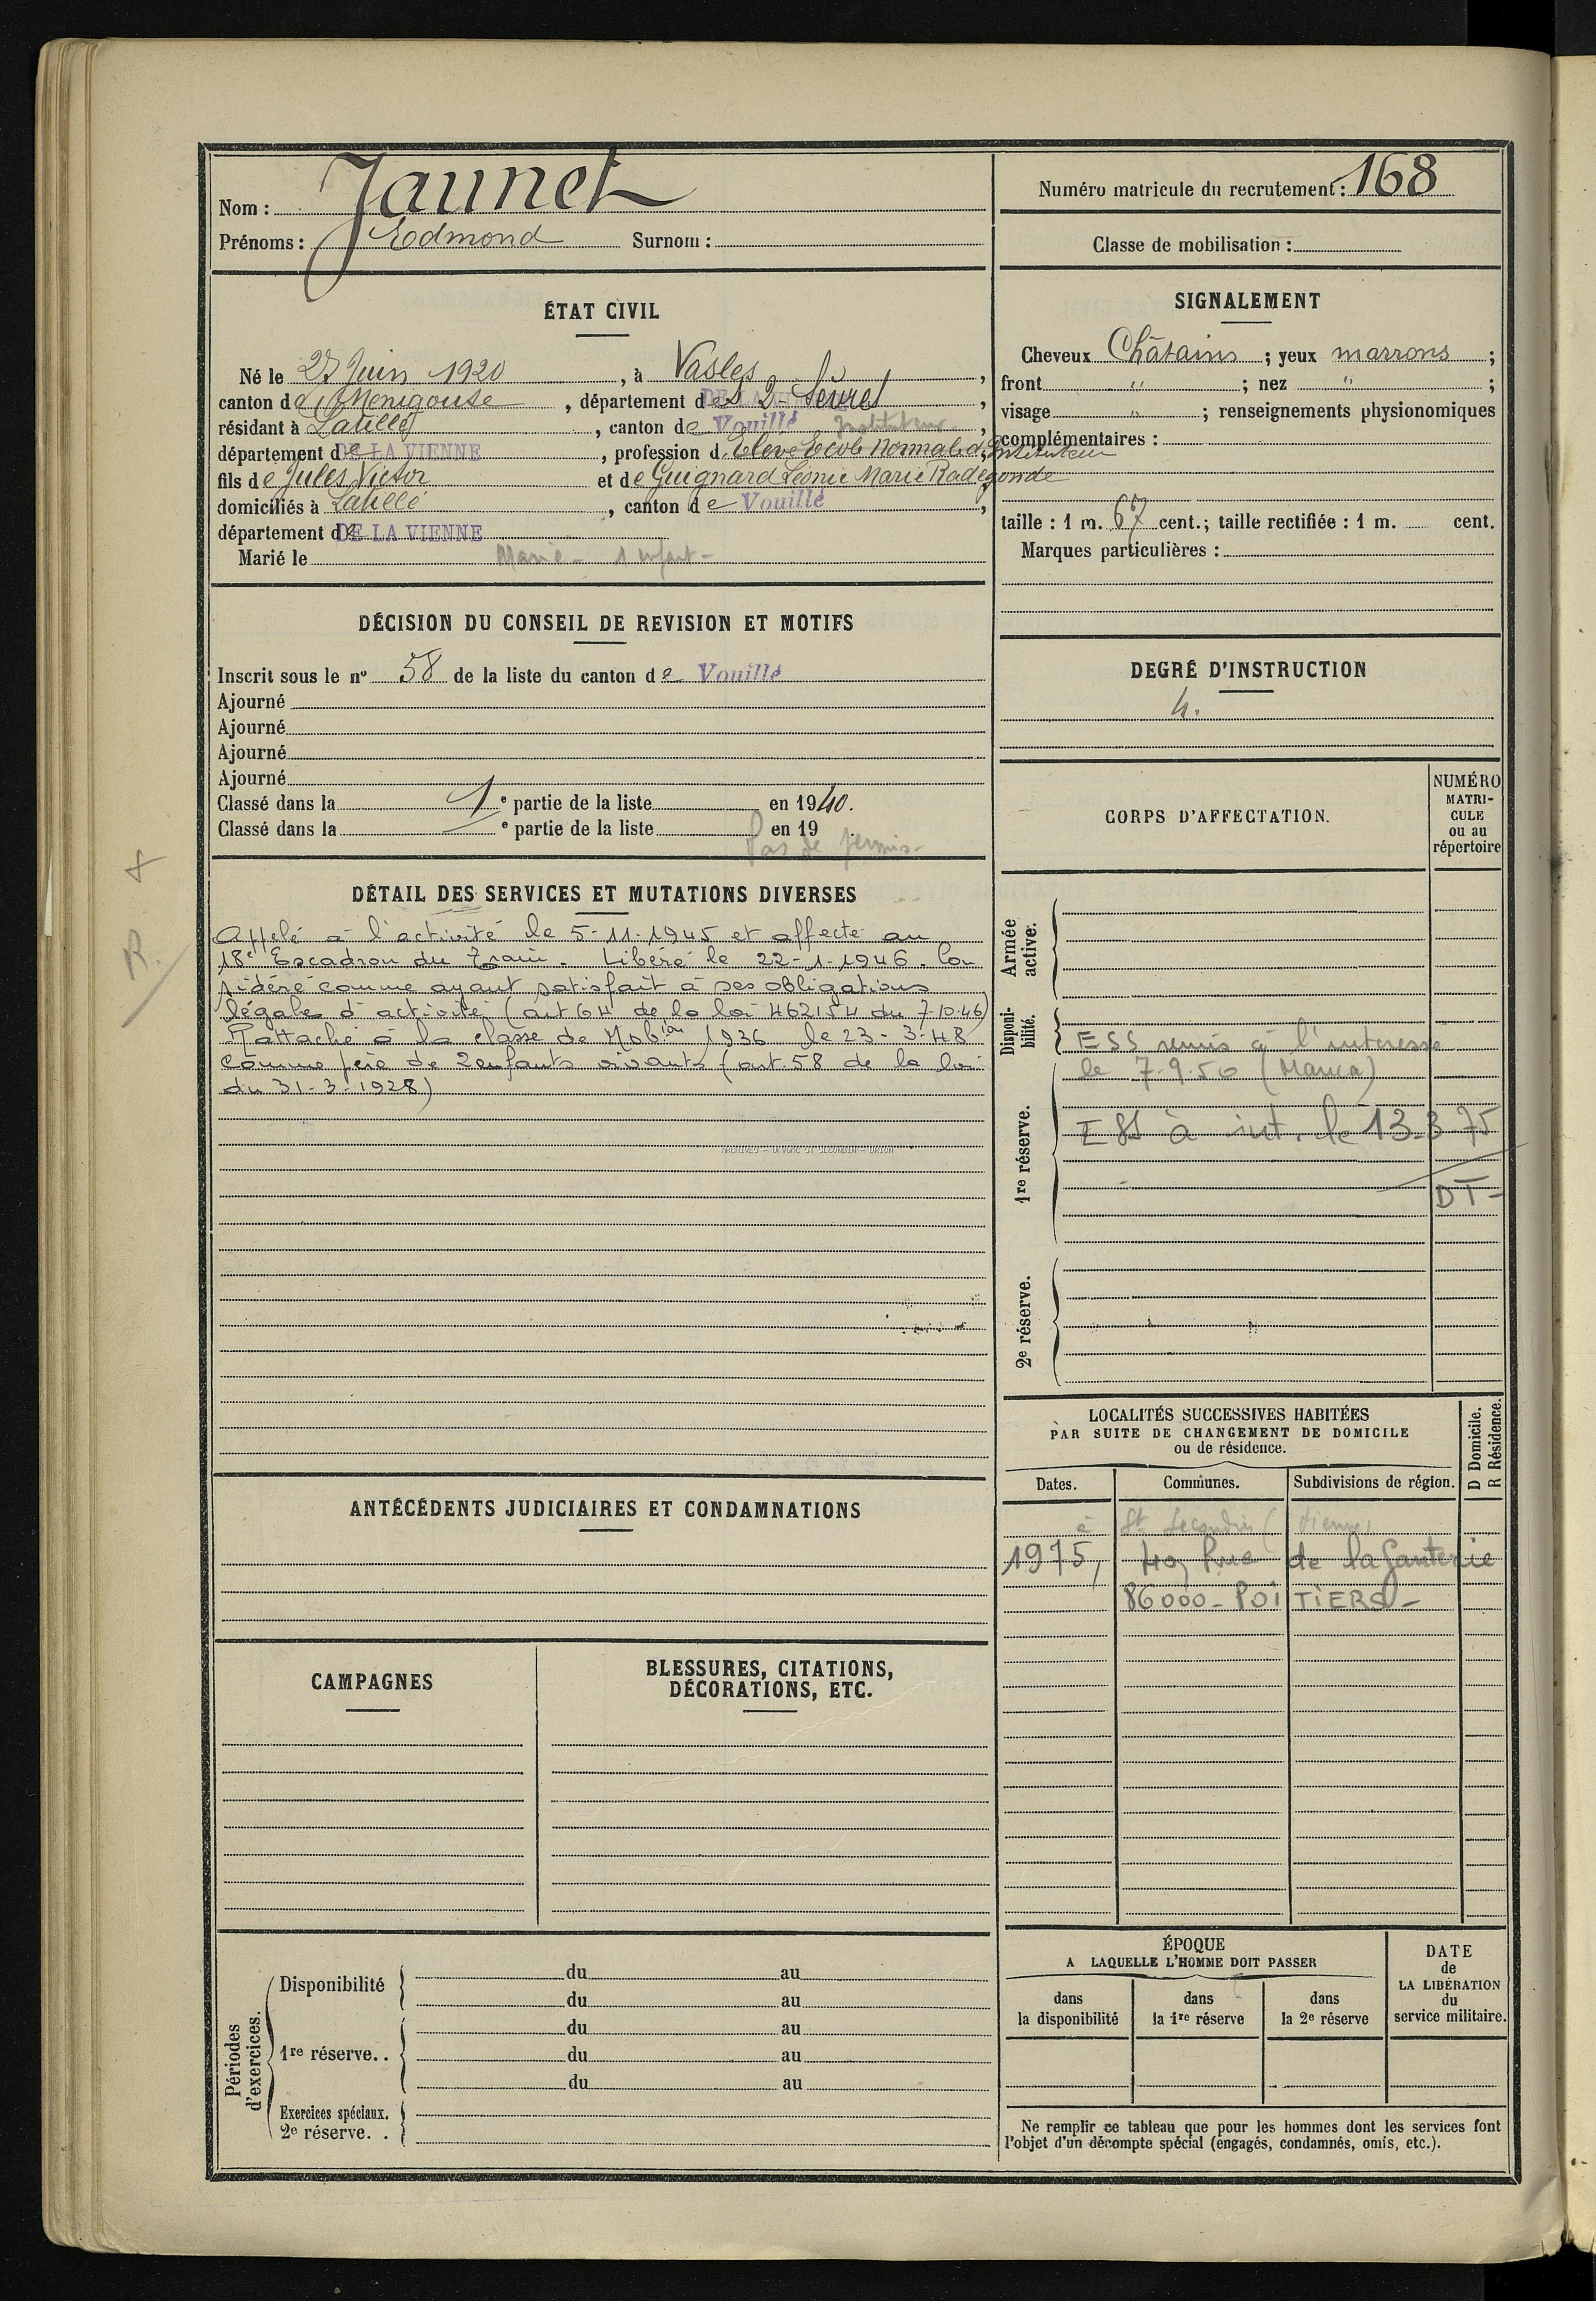 Nom : Jaunet
Prénoms : Edmond Surnom :
Numéro matricule du recrutement : 168
Classe de mobilisation :
ÉTAT CIVIL
Né le 27 Juin 1920, à Vasles,
canton de Menigoute, département des 2-Sèvres,
résidant à Latillé, canton de Vouillé Instituteur,
département DE LA VIENNE, profession d'Elève Ecole Normale d'Instituteur
fils de Jules Victor et de Guignard Léonie Marie Radegonde
domiciliés à Latillé, canton de Vouillé,
département DE LA VIENNE
Marié le Marié - 1 enfant -
SIGNALEMENT
Cheveux Châtains ; yeux marrons ;
front " ; nez " ;
visage " ; renseignements physionomiques
complémentaires :
taille : 1 m. 67 cent.; taille rectifiée : 1 m. cent.
Marques particulières :
DÉCISION DU CONSEIL DE REVISION ET MOTIFS
Inscrit sous le nº 58 de la liste du canton de Vouillé
Ajourné
Ajourné
Ajourné
Ajourné
Classé dans la 1 e partie de la liste en 1940.
Classé dans la e partie de la liste en 19
Pas de permis -
DEGRÉ D'INSTRUCTION
4.
R.
DÉTAIL DES SERVICES ET MUTATIONS DIVERSES
Appelé à l'activité le 5-11-1945 et affecté au
18e Escadron du Train. Libéré le 22-1-1946. Con
sidéré comme ayant satisfait à ses obligations
légales d'activité (art 64 de la loi 462154 du 7-10-46)
Rattaché à la classe de Mobion 1936 le 23-3-48
comme père de 2 enfants vivants (art. 58 de la loi
du 31-3-1928)
ARCHIVES - DEVGAC ST SECONDIN - BRION
CORPS D'AFFECTATION.
NUMÉRO
MATRI-
CULE
ou au
répertoire
Armée
active.
Disponi-
bilité.
ESS remis à l'intéressé
le 7-9-50 (Mauca)
1re réserve.
ESS à int. le 13-3-75
DT-
2e réserve.
ANTÉCÉDENTS JUDICIAIRES ET CONDAMNATIONS
LOCALITÉS SUCCESSIVES HABITÉES
PAR SUITE DE CHANGEMENT DE DOMICILE
ou de résidence.
D Domicile.
R Résidence.
Dates. Communes. Subdivisions de région.
à St Secondin (Vienne)
1975, 40, Rue de la Ganterie
86000 - POITIERS -
CAMPAGNES
BLESSURES, CITATIONS,
DÉCORATIONS, ETC.
Périodes
d'exercices.
Disponibilité du au
du au
du au
1re réserve. . du au
du au
Exercices spéciaux.
2e réserve. .
ÉPOQUE
A LAQUELLE L'HOMME DOIT PASSER
dans
la disponibilité
dans
la 1re réserve
dans
la 2e réserve
DATE
de
LA LIBÉRATION
du
service militaire.
Ne remplir ce tableau que pour les hommes dont les services font
l'objet d'un décompte spécial (engagés, condamnés, omis, etc.).